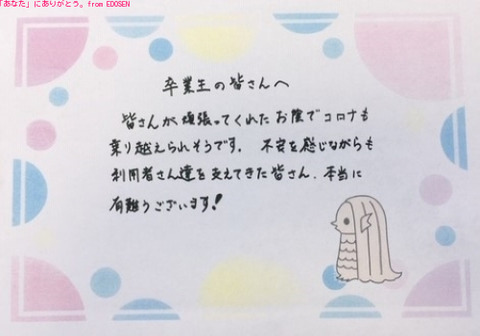 「あなた」にありがとう。from EDOSEN
卒業王の皆さんへ
皆さんが頑張ってくれたお陰でコロナも
乗り越えられそうです。不安を感じながらも
利用者さん達を支えてきた皆さん、本当に
有難うございます!